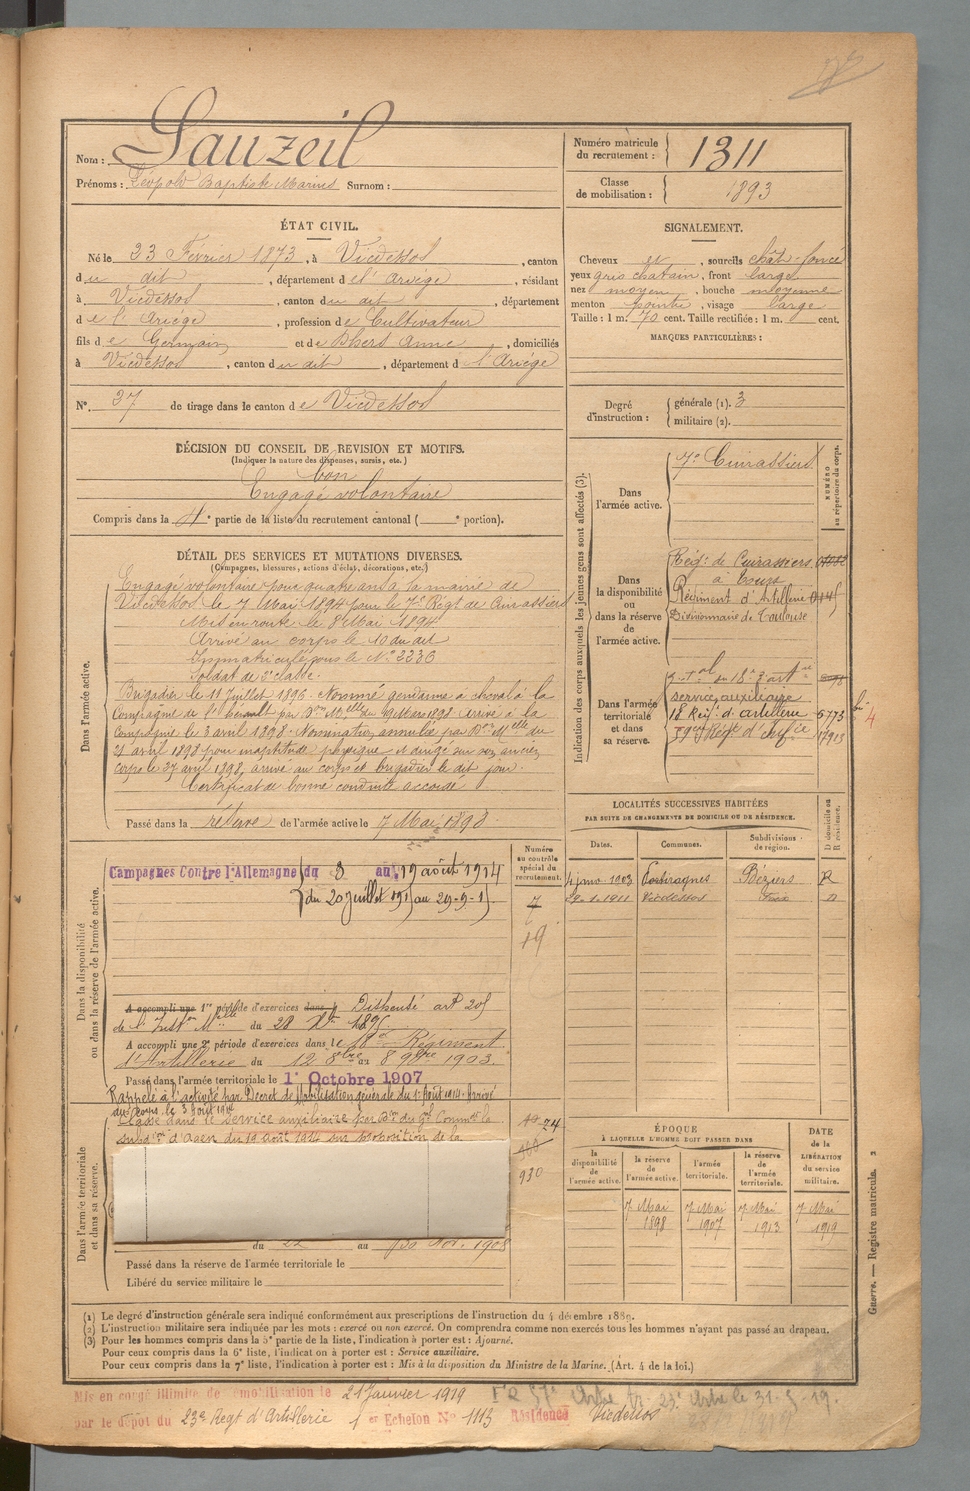 Nom : Lauzeil
Prénoms : Léopold Baptiste Marius Surnom :
Numéro matricule du recrutement : 1311
Classe de mobilisation : 1893
ÉTAT CIVIL.
Né le 23 Février 1873, à Vicdessos, canton
du dit, département de l'Ariège, résidant
à Vicdessos, canton du dit, département
de l'Ariège, profession de Cultivateur
fils de Germain et de Anne, domiciliés
à Vicdessos, canton du dit, département de l'Ariège
N° 37 de tirage dans le canton de Vicdessos
SIGNALEMENT.
Cheveux et, sourcils chât-foncé
yeux gris chatain, front large
nez moyen, bouche moyenne
menton pointu, visage large
Taille : 1 m. 70 cent. Taille rectifiée : 1 m. cent.
MARQUES PARTICULIÈRES :
Degré d'instruction : générale (1). 3
militaire (2).
DÉCISION DU CONSEIL DE REVISION ET MOTIFS.
(Indiquer la nature des dispenses, sursis, etc.)
bon
Engagé volontaire
Compris dans la 4e partie de la liste du recrutement cantonal ( e portion).
DÉTAIL DES SERVICES ET MUTATIONS DIVERSES.
(Campagnes, blessures, actions d'éclat, décorations, etc.)
Dans l'armée active.
Engagé volontaire pour quatre ans à la mairie de
Vicdessos le 7 Mai 1894 pour le 7e Régt de Cuirassiers
Mis en route le 8 Mai 1894
Arrivé au corps le 10 du dit
Immatriculé sous le N° 2236
Soldat de 2e classe.
Brigadier le 11 Juillet 1896. Nommé gendarme à cheval à la
Compagnie de l'Hérault par Don Mlle du 19 Mars 1898. Arrivé à la
Compagnie le 3 avril 1898. Nomination annulée par Don Mlle du
21 avril 1898 pour inaptitude physique et dirigé sur son ancien
corps le 27 avril 1898, arrivé au corps et brigadier le dit jour.
Certificat de bonne conduite accordé
Passé dans la réserve de l'armée active le 7 Mai 1898
Indication des corps auxquels les jeunes gens sont affectés (3).
NUMÉRO au répertoire du corps.
Dans l'armée active.
7e Cuirassiers
Dans la disponibilité ou dans la réserve de l'armée active.
Régt de Cuirassiers
à Tours
Régiment d'Artillerie
Divisionnaire de Toulouse
Dans l'armée territoriale et dans sa réserve.
service auxiliaire
18 Régt d'artillerie 5773
17913
LOCALITÉS SUCCESSIVES HABITÉES
PAR SUITE DE CHANGEMENTS DE DOMICILE OU DE RÉSIDENCE.
Dates. Communes. Subdivisions de région. D domicile ou R résidence.
4 janv. 1903 Portiragnes Béziers R
29-1-1911 Vicdessos Foix D
Dans la disponibilité ou dans la réserve de l'armée active.
Numéro au contrôle spécial du recrutement.
7
19
Campagnes Contre l'Allemagne du 3 au 19 août 1914
du 20 Juillet 191 au 29-9-1
A accompli une 1re période d'exercices dans l Dispensé art 205
de l'Inston Mlle du 28 Xbre 1895
A accompli une 2e période d'exercices dans le 18e Régiment
d'Artillerie du 12 8bre au 8 9bre 1903.
Passé dans l'armée territoriale le 1er Octobre 1907
Rappelé à l'activité par Décret de Mobilisation générale du 1er Août 1914. Arrivé
au corps le 3 Août 1914
Classé dans le service auxiliaire par Don du Gal Commt la
subdon d'Agen du 18 août 1914 sur proposition de la
Dans l'armée territoriale et dans sa réserve.
24
930
du 22 au 30 Nov. 1908
Passé dans la réserve de l'armée territoriale le
Libéré du service militaire le
ÉPOQUE
À LAQUELLE L'HOMME DOIT PASSER DANS
DATE de la LIBÉRATION du service militaire.
la disponibilité de l'armée active. la réserve de l'armée active. l'armée territoriale. la réserve de l'armée territoriale.
7 Mai 1898 7 Mai 1907 7 Mai 1913 7 Mai 1919
Guerre. — Registre matricule. 2
(1) Le degré d'instruction générale sera indiqué conformément aux prescriptions de l'instruction du 4 décembre 1889.
(2) L'instruction militaire sera indiquée par les mots : exercé ou non exercé. On comprendra comme non exercés tous les hommes n'ayant pas passé au drapeau.
(3) Pour les hommes compris dans la 5e partie de la liste, l'indication à porter est : Ajourné.
Pour ceux compris dans la 6e liste, l'indication à porter est : Service auxiliaire.
Pour ceux compris dans la 7e liste, l'indication à porter est : Mis à la disposition du Ministre de la Marine. (Art. 4 de la loi.)
Mis en congé illimité de démobilisation le 21 Janvier 1919
par le dépôt du 23e Régt d'Artillerie 1er Echelon N° 1113 Résidence Vicdessos